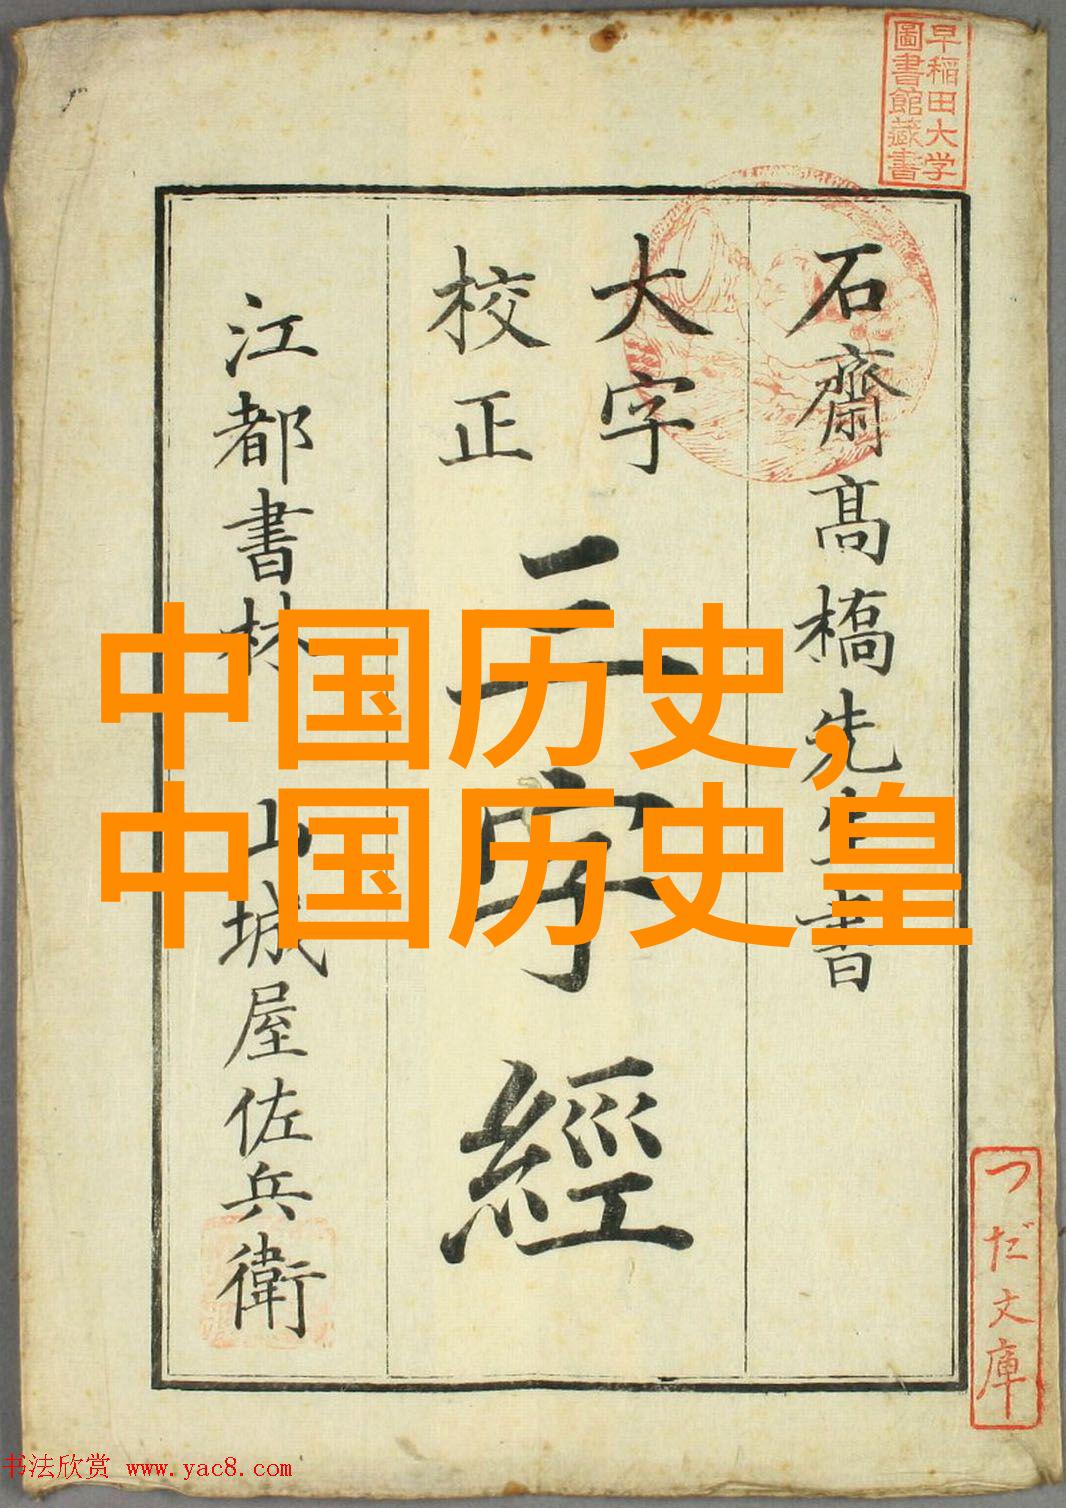 早稲田大学
圖書館藏書
石齋髙橋先生書
大字
校正
三字經
江都書林 山城屋佐兵衛
中国历史,
中国历史皇
つだ文庫
书法欣赏 www.yac8.com